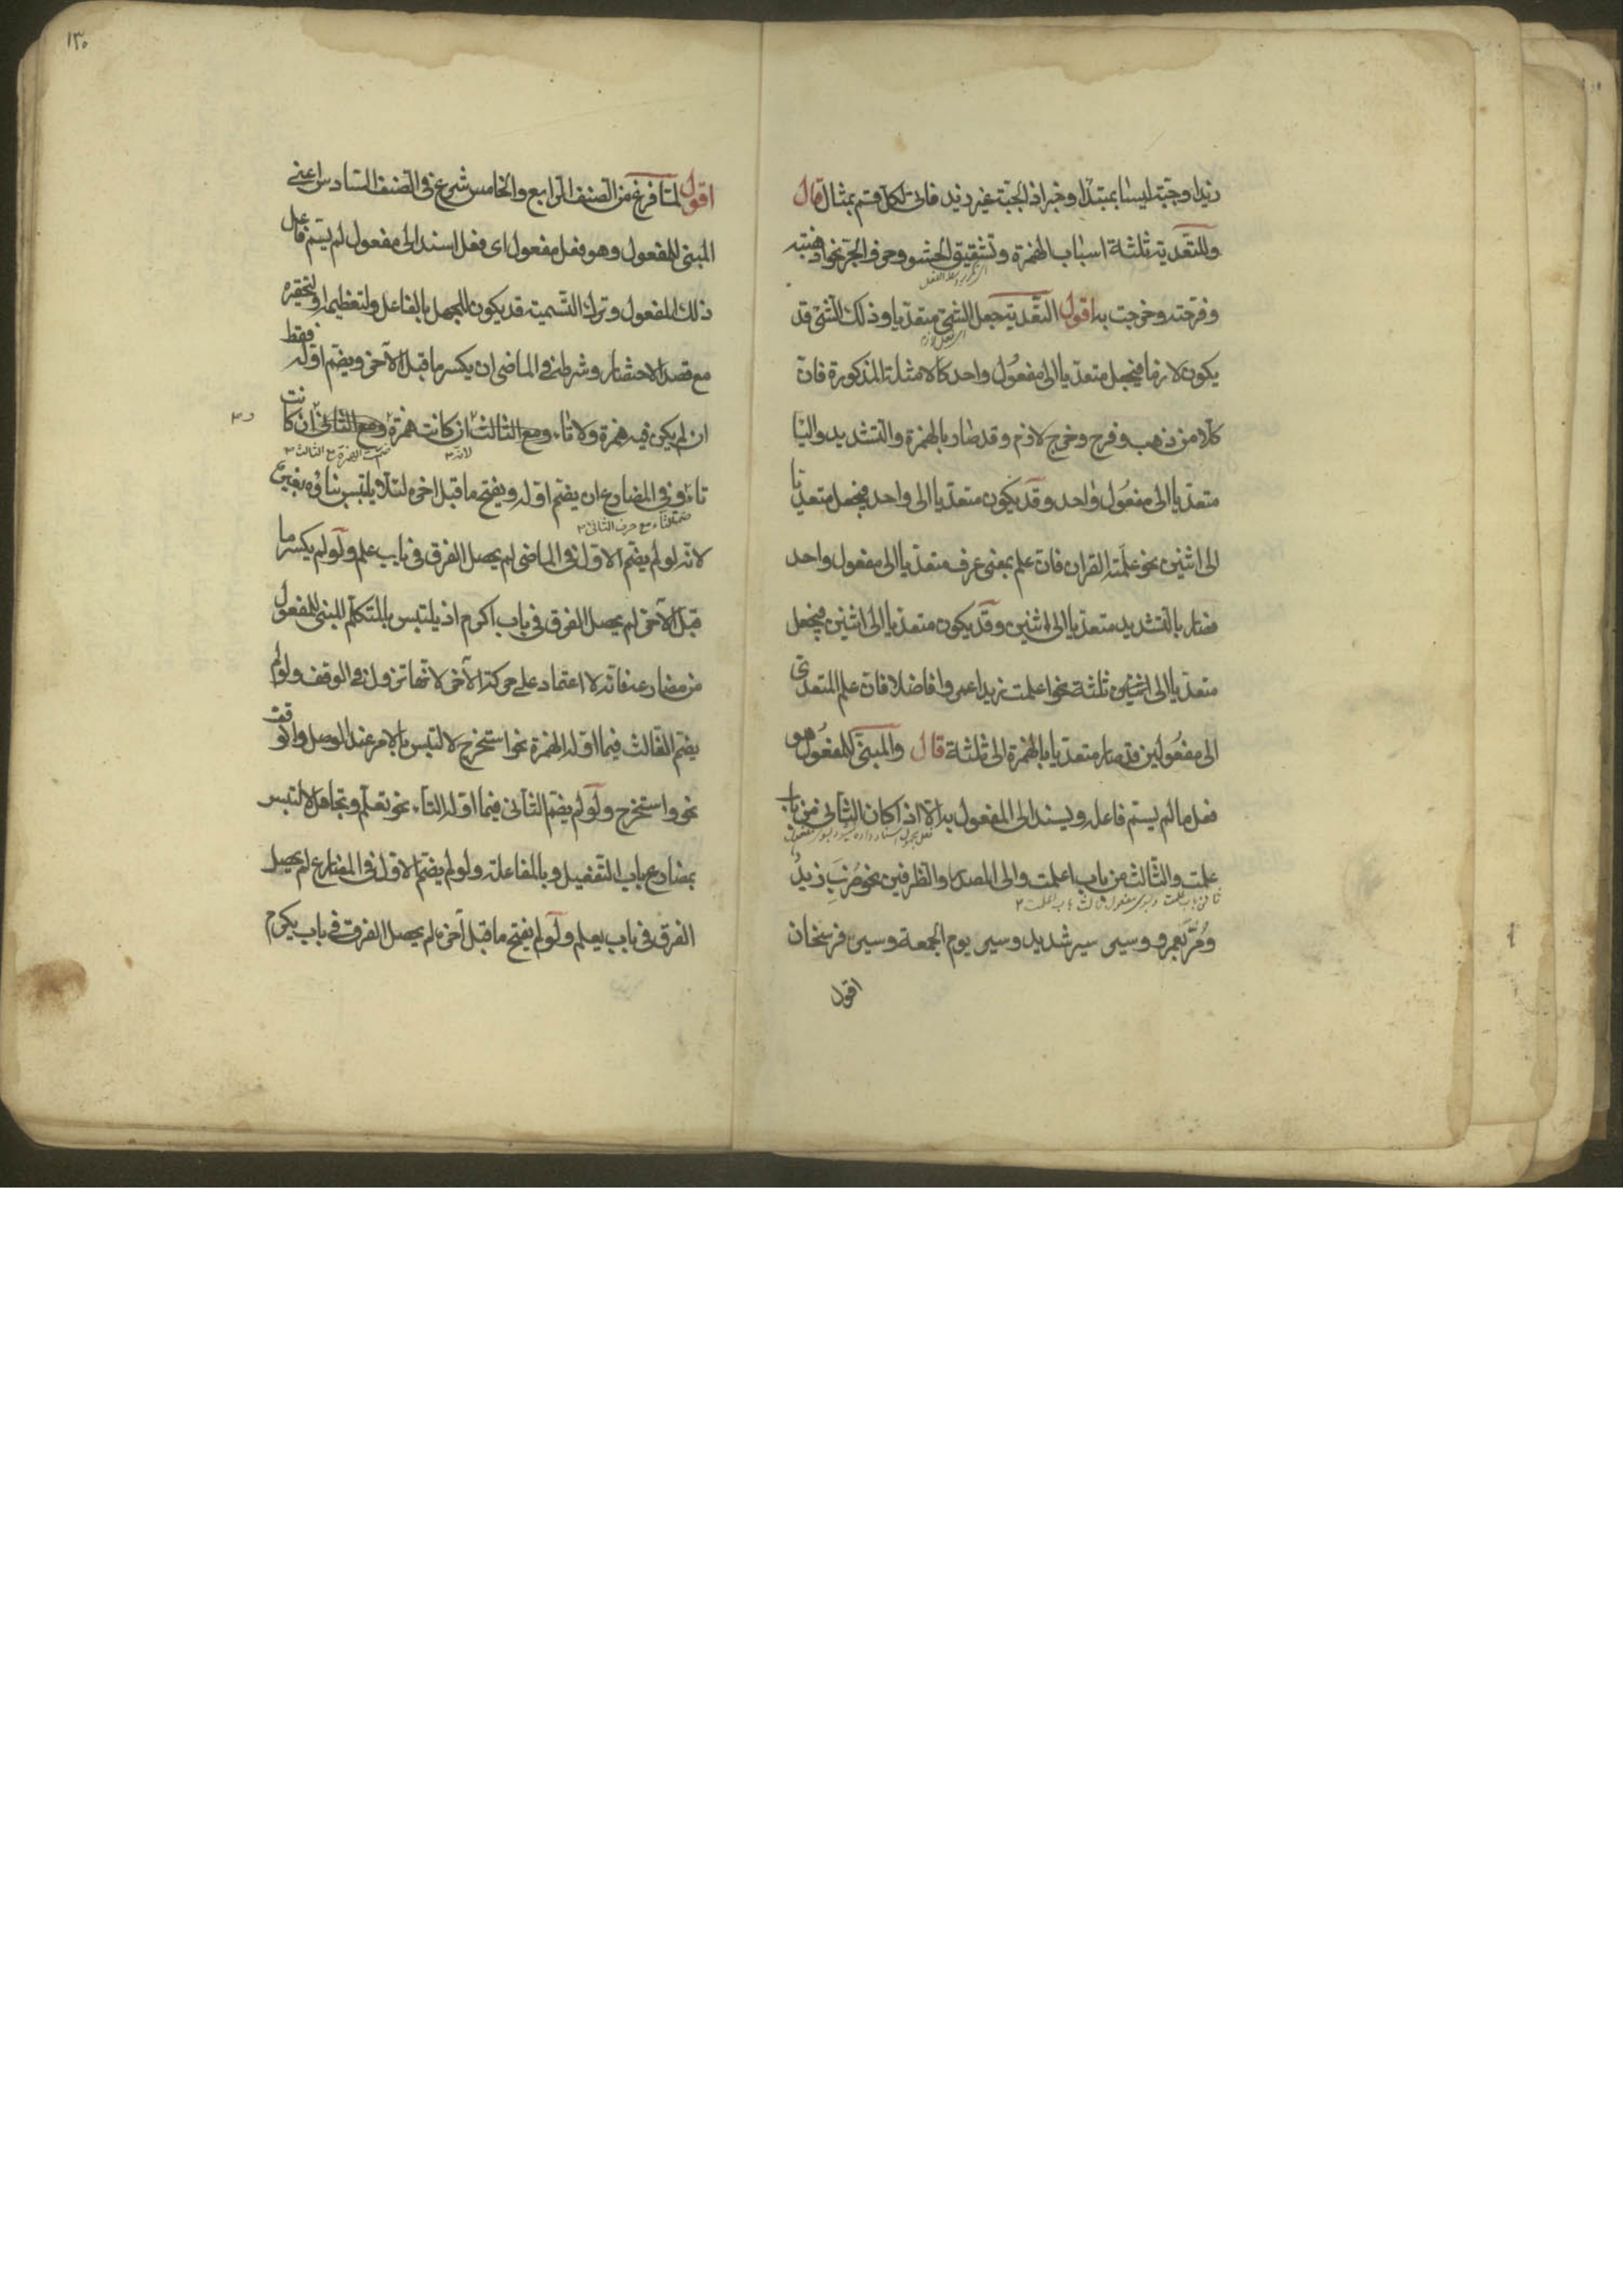 زيدا وجبة ليسا بمبتدا وخبر اذ الجبة غير زيد فاتى لكل قسم بمثال قال
وللتعدية ثلثة اسباب الهمزة وتثقيل الحشو وحرف الجر نحو اذهبته
وفرحته وخرجت به اقول التعدية جعل الشئ متعديا وذلك الشئ قد
يكون لازما فيجعل متعديا الى مفعول واحد كالامثلة المذكورة فان
كلا من ذهب وفرح وخرج لازم وقد صار بالهمزة والتشديد والبا
متعديا الى مفعول واحد وقد يكون متعديا الى واحد فيجعل متعديا
الى اثنين نحو علمته القران فان علم بمعنى عرف متعديا الى مفعول واحد
فصار بالتشديد متعديا الى اثنين وقد يكون متعديا الى اثنين فيجعل
متعديا الى ثلثة نحو اعلمت زيدا عمروا فاضلا فان علم المتعدى
الى مفعولين قد صار متعديا بالهمزة الى ثلثة قال والمبنى للمفعول هو
فعل ما لم يسم فاعله ويسند الى المفعول به الا اذا كان الثانى من باب
علمت والثالث من باب اعلمت والى المصدر والظرفين نحو ضرب زيد
ومر بعمرو وسير سير شديد وسير يوم الجمعة وسير فرسخان
اقول
١٣٠
اقول لما فرغ من الصنف الرابع والخامس شرع فى الصنف السادس اعنى
المبنى للمفعول وهو فعل مفعول اى فعل اسند الى مفعول لم يسم فاعل
ذلك المفعول وترك التسمية قد يكون للجهل بالفاعل ولتعظيمه او لتحقيره
مع قصد الاختصار وشرطه فى الماضى ان يكسر ما قبل الآخر ويضم اوله فقط
ان لم يكن فيه همزة ولا تاء ومع الثالث ان كانت همزة ومع الثانى ان كانت
تاء وفى المضارع ان يضم اوله ويفتح ما قبل اخره لئلا يلتبس بناؤه بغيره
لانه لو لم يضم الاول فى الماضى لم يحصل الفرق فى باب علم ولو لم يكسر ما
قبل الآخر لم يحصل الفرق فى باب اكرم اذ يلتبس بالمتكلم المبنى للمفعول
من مضارعه فانه لا اعتماد على حركة الآخر لانها تزول فى الوقف ولو لم
يضم الثالث فيما اوله الهمزة نحو استخرج لالتبس بالامر عند الوصل والوقف
نحو واستخرج ولو لم يضم الثانى فيما اوله التاء نحو تعلم وتجاهل لالتبس
بمضارع باب التفعيل وبالمفاعلة ولو لم يضم الاول فى المضارع لم يحصل
الفرق فى باب يعلم ولو لم يفتح ما قبل آخره لم يحصل الفرق فى باب يكرم